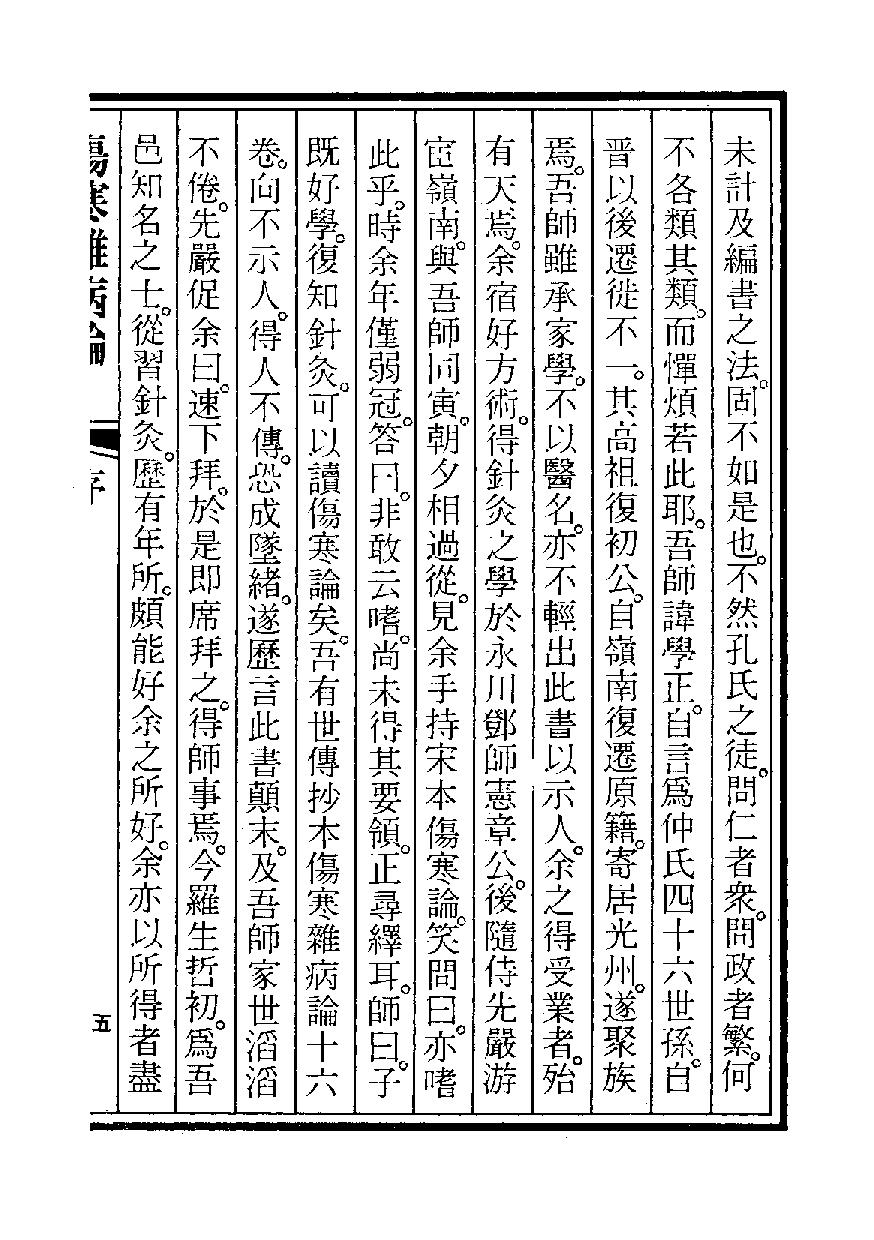 未計及編書之法。固不如是也。不然孔氏之徒。問仁者衆。問政者繁。何
不各類其類。而憚煩若此耶。吾師諱學正。自言爲仲氏四十六世孫。自
晉以後遷徙不一。其高祖復初公。自嶺南復遷原籍。寄居光州。遂聚族
焉。吾師雖承家學。不以醫名。亦不輕出此書以示人。余之得受業者。殆
有天焉。余宿好方術。得針灸之學於永川鄧師憲章公。後隨侍先嚴游
宦嶺南。與吾師同寅。朝夕相過從。見余手持宋本傷寒論。笑問曰。亦嗜
此乎。時余年僅弱冠。答曰。非敢云嗜。尚未得其要領。正尋繹耳。師曰。子
既好學。復知針灸。可以讀傷寒論矣。吾有世傳抄本傷寒雜病論十六
卷。向不示人。得人不傳。恐成墜緒。遂歷言此書顛末。及吾師家世滔滔
不倦。先嚴促余曰。速下拜。於是即席拜之。得師事焉。今羅生哲初。爲吾
邑知名之士。從習針灸。歷有年所。頗能好余之所好。余亦以所得者盡
傷寒雜病論 序 五